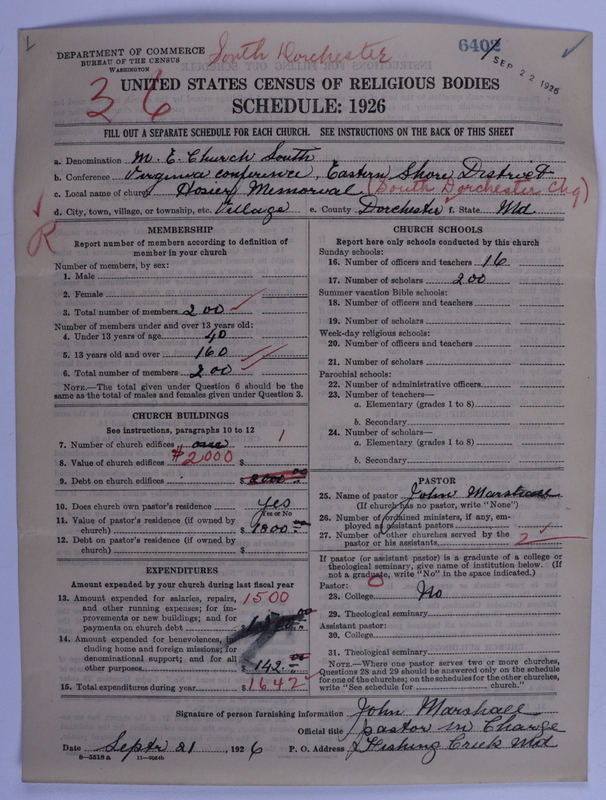 DEPARTMENT OF COMMERCE
BUREAU OF THE CENSUS
WASHINGTON
South Dorchester
6402
SEP 22 1926
36
UNITED STATES CENSUS OF RELIGIOUS BODIES
SCHEDULE: 1926
FILL OUT A SEPARATE SCHEDULE FOR EACH CHURCH. SEE INSTRUCTIONS ON THE BACK OF THIS SHEET
a. Denomination M. E. Church South
b. Conference Virginia conference, Eastern Shore District
c. Local name of church Hosier Memorial (South Dorchester Chg)
d. City, town, village, or township, etc. Village e. County Dorchester f. State Md
R
MEMBERSHIP
Report number of members according to definition of
member in your church
Number of members, by sex:
1. Male
2. Female
3. Total number of members 200
Number of members under and over 13 years old:
4. Under 13 years of age 40
5. 13 years old and over 160
6. Total number of members 200
NOTE.—The total given under Question 6 should be the
same as the total of males and females given under Question 3.
CHURCH BUILDINGS
See instructions, paragraphs 10 to 12
7. Number of church edifices one 1
8. Value of church edifices #2000 $
9. Debt on church edifices $ 2000.00
10. Does church own pastor's residence yes
Yes or No
11. Value of pastor's residence (if owned by
church) $ 1800.00
12. Debt on pastor's residence (if owned by
church) $
EXPENDITURES
Amount expended by your church during last fiscal year
13. Amount expended for salaries, repairs, 1500
and other running expenses; for im-
provements or new buildings; and for
payments on church debt
14. Amount expended for benevolences, in-
cluding home and foreign missions; for
denominational support; and for all
other purposes $ 142.00
15. Total expenditures during year $ 1642
CHURCH SCHOOLS
Report here only schools conducted by this church
Sunday schools:
16. Number of officers and teachers 16
17. Number of scholars 200
Summer vacation Bible schools:
18. Number of officers and teachers
19. Number of scholars
Week-day religious schools:
20. Number of officers and teachers
21. Number of scholars
Parochial schools:
22. Number of administrative officers
23. Number of teachers—
a. Elementary (grades 1 to 8)
b. Secondary
24. Number of scholars—
a. Elementary (grades 1 to 8)
b. Secondary
PASTOR
25. Name of pastor John Marshall
(If church has no pastor, write "None")
26. Number of ordained ministers, if any, em-
ployed as assistant pastors
27. Number of other churches served by the
pastor or his assistants 2
If pastor (or assistant pastor) is a graduate of a college or
theological seminary, give name of institution below. (If
not a graduate, write "No" in the space indicated.)
Pastor:
28. College No
29. Theological seminary
Assistant pastor:
30. College
31. Theological seminary
NOTE.—Where one pastor serves two or more churches,
Questions 28 and 29 should be answered only on the schedule
for one of the churches; on the schedules for the other churches,
write "See schedule for church."
Signature of person furnishing information John Marshall
Official title pastor in Charge
Date Septr 21, 1926 P. O. Address Fishing Creek Md
8—5518a